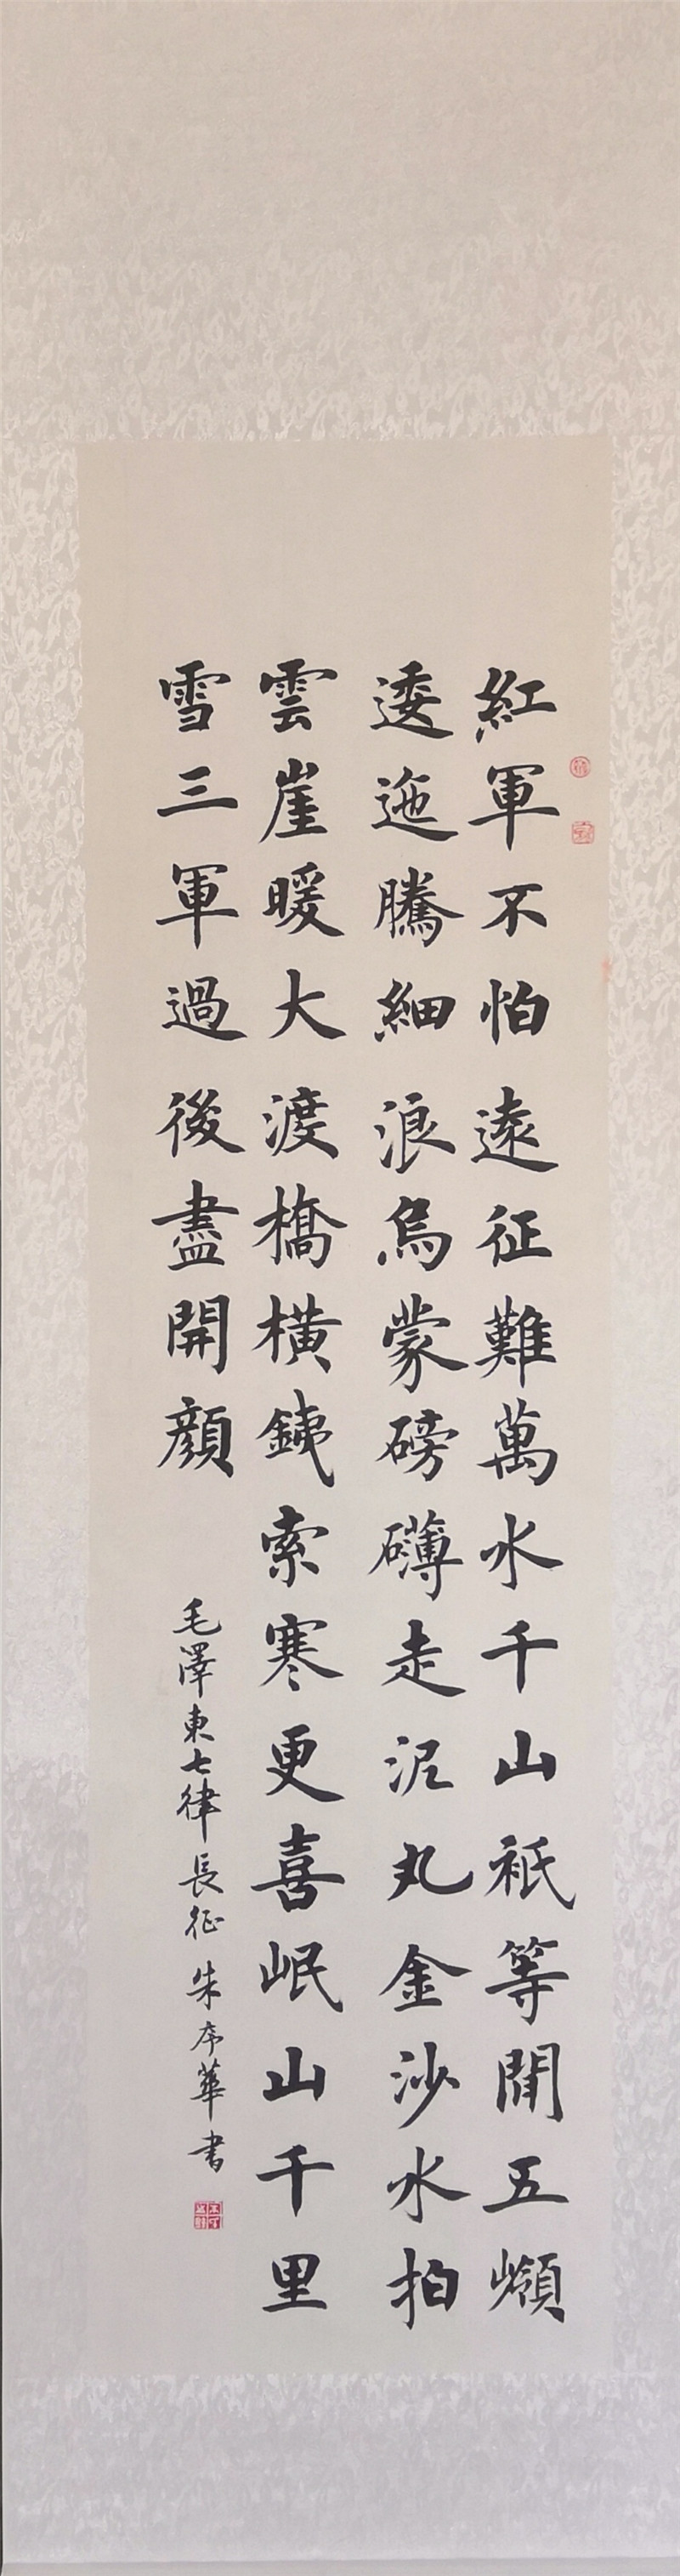 紅軍不怕遠征難萬水千山祇等閒五嶺
逶迤騰細浪烏蒙磅礴走泥丸金沙水拍
雲崖暖大渡橋橫銕索寒更喜岷山千里
雪三軍過後盡開顏
毛澤東七律長征朱序華書